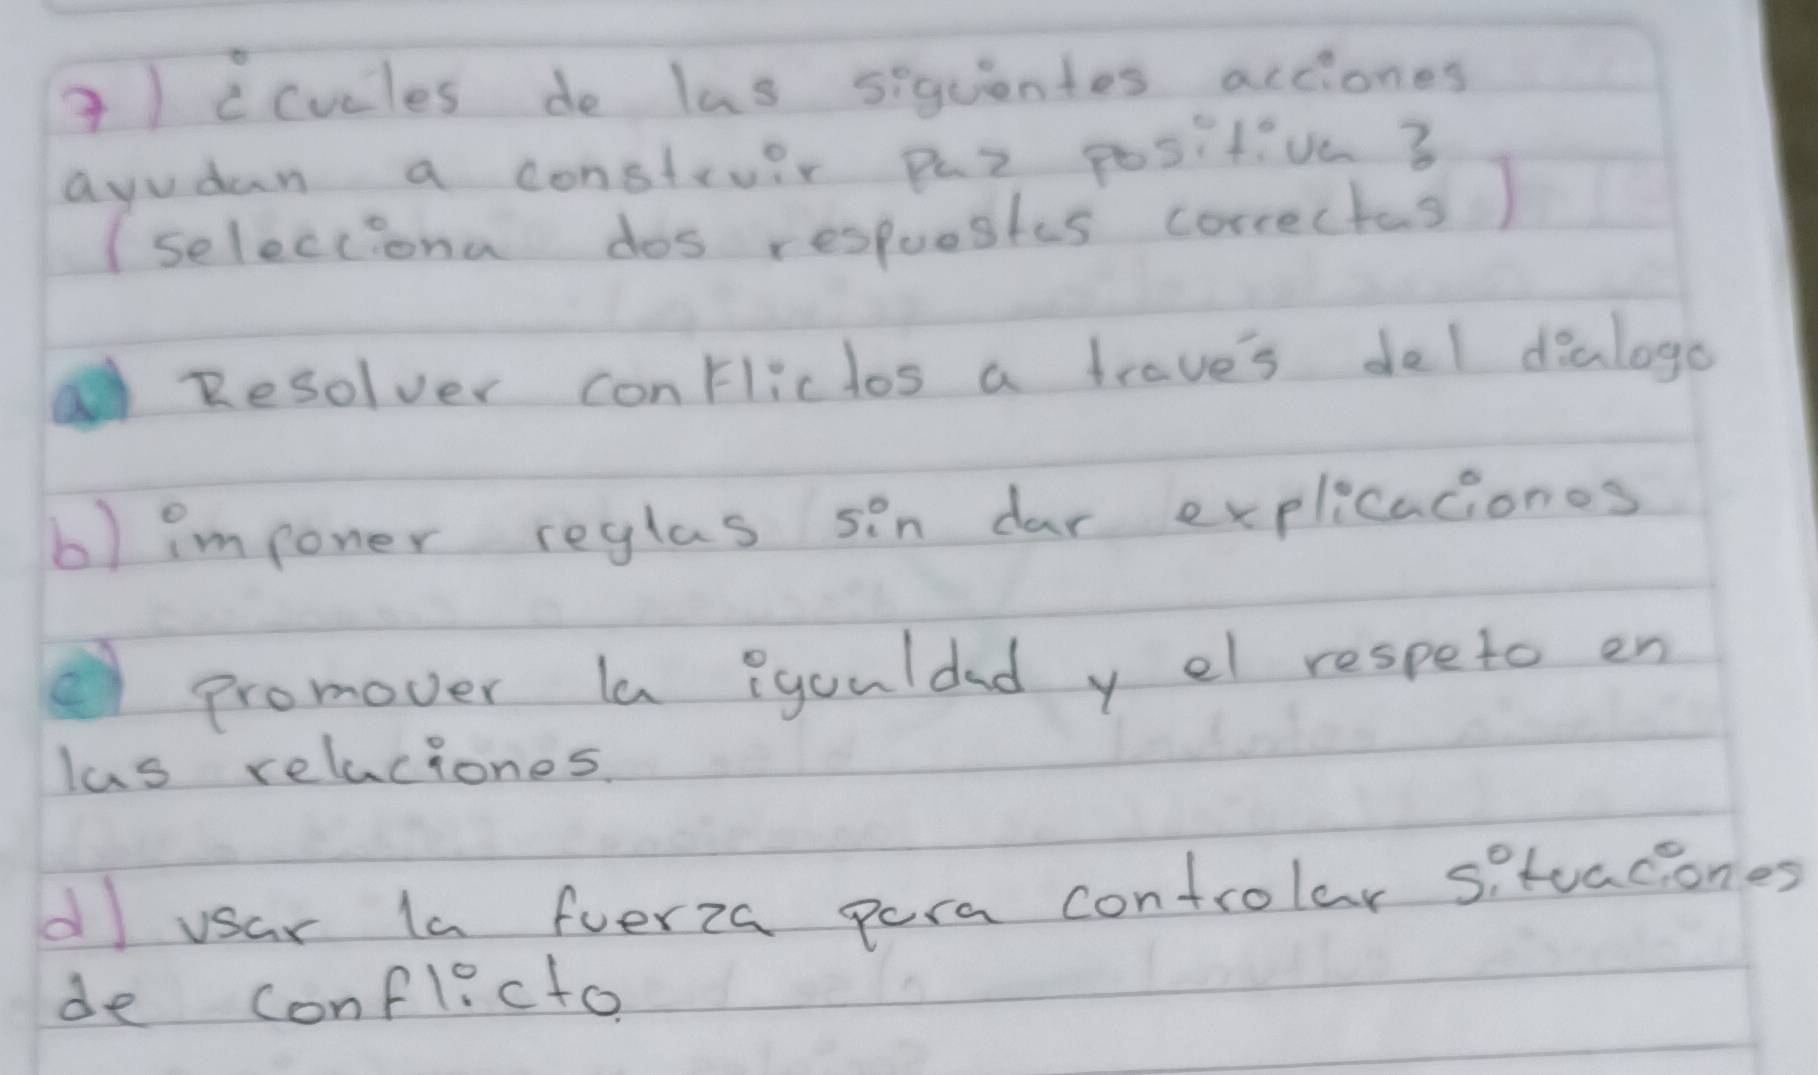 7) ¿cuales de las siguientes acciones
ayudan a construir paz positiva?
(selecciona dos respuestas correctas)
a) Resolver conflictos a través del dialogo
b) imponer reglas sin dar explicaciones
c) promover la igualdad y el respeto en
las relaciones.
d) usar la fuerza para controlar situaciones
de conflicto.